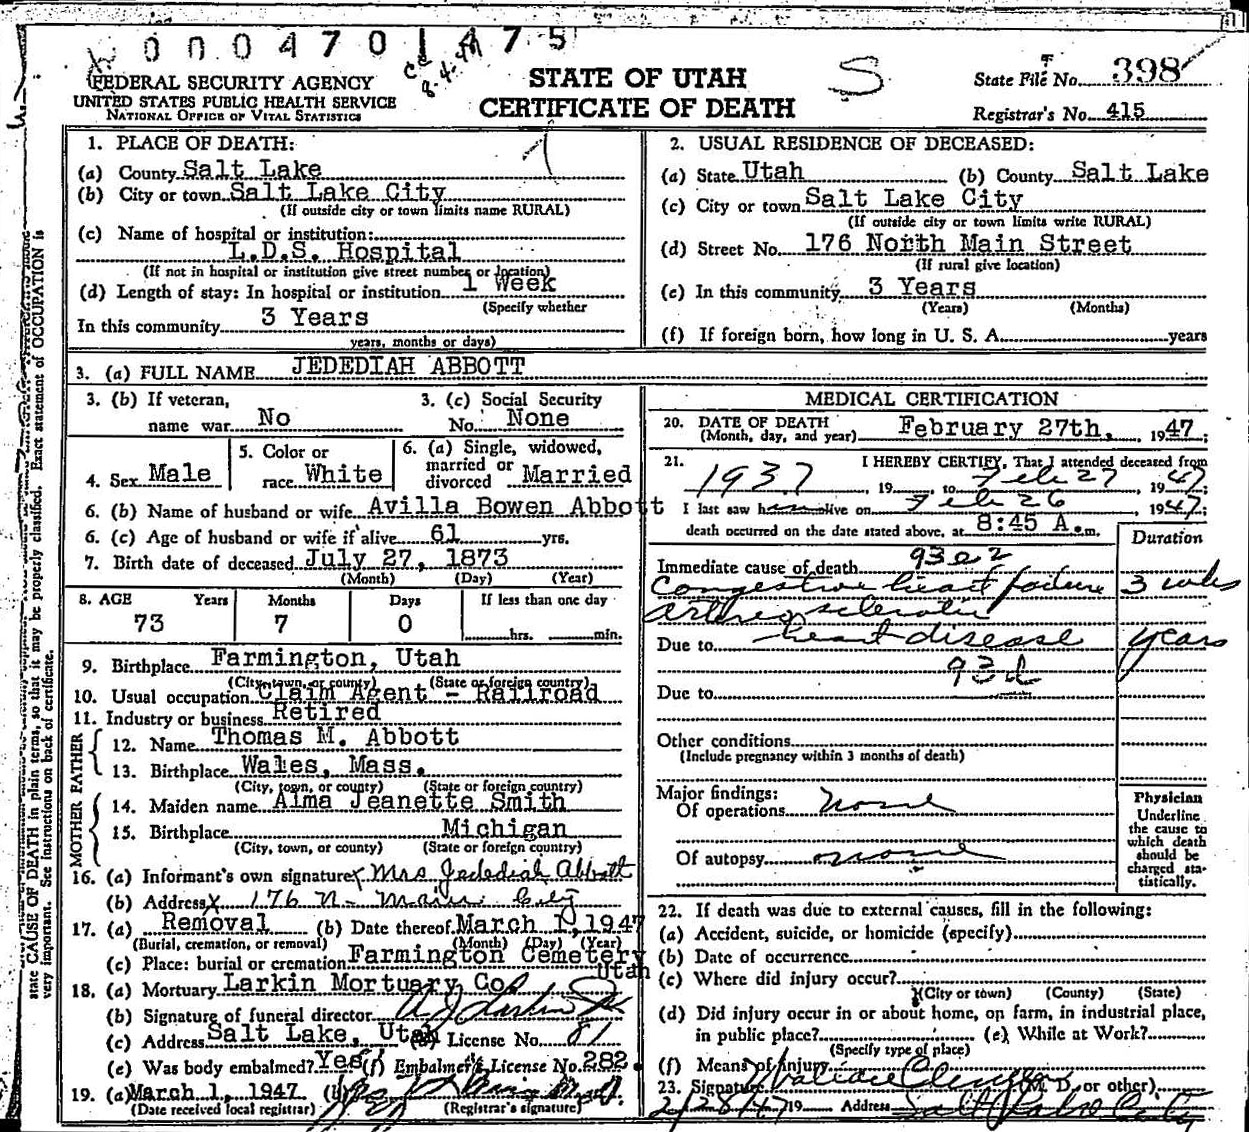 000470 1475
8.4.47
FEDERAL SECURITY AGENCY
UNITED STATES PUBLIC HEALTH SERVICE
NATIONAL OFFICE OF VITAL STATISTICS
STATE OF UTAH
CERTIFICATE OF DEATH
S
State File No. 398
Registrar's No. 415
1. PLACE OF DEATH:
(a) County Salt Lake
(b) City or town Salt Lake City
(If outside city or town limits name RURAL)
(c) Name of hospital or institution:
L.D.S. Hospital
(If not in hospital or institution give street number or location)
(d) Length of stay: In hospital or institution 1 Week
(Specify whether
In this community 3 Years
years, months or days)
2. USUAL RESIDENCE OF DECEASED:
(a) State Utah (b) County Salt Lake
(c) City or town Salt Lake City
(If outside city or town limits write RURAL)
(d) Street No. 176 North Main Street
(If rural give location)
(e) In this community 3 Years
(Years) (Months)
(f) If foreign born, how long in U. S. A. years
3. (a) FULL NAME JEDEDIAH ABBOTT
3. (b) If veteran,
name war No
3. (c) Social Security
No. None
4. Sex Male
5. Color or
race White
6. (a) Single, widowed,
married or
divorced Married
6. (b) Name of husband or wife Avilla Bowen Abbott
6. (c) Age of husband or wife if alive 61 yrs.
7. Birth date of deceased July 27, 1873
(Month) (Day) (Year)
8. AGE Years Months Days If less than one day
73 7 0 hrs. min.
9. Birthplace Farmington, Utah
(City, town, or county) (State or foreign country)
10. Usual occupation Claim Agent - Railroad
11. Industry or business Retired
FATHER
12. Name Thomas M. Abbott
13. Birthplace Wales, Mass.
(City, town, or county) (State or foreign country)
MOTHER
14. Maiden name Alma Jeanette Smith
15. Birthplace Michigan
(City, town, or county) (State or foreign country)
16. (a) Informant's own signature x Mrs Jedediah Abbott
(b) Address x 176 N- Main City
17. (a) Removal (b) Date thereof March 1, 1947
(Burial, cremation, or removal) (Month) (Day) (Year)
(c) Place: burial or cremation Farmington Cemetery
Utah
18. (a) Mortuary Larkin Mortuary Co
(b) Signature of funeral director
(c) Address Salt Lake, Utah License No. 81
(e) Was body embalmed? Yes (f) Embalmer's License No. 282
19. (a) March 1, 1947 (b)
(Date received local registrar) (Registrar's signature)
MEDICAL CERTIFICATION
20. DATE OF DEATH
(Month, day, and year) February 27th, 1947;
21. I HEREBY CERTIFY, That I attended deceased from
1937, 19 , to Feb 27 1947;
I last saw him alive on Feb 26 1947;
death occurred on the date stated above, at 8:45 A.m.
Duration
93e2
Immediate cause of death
Congestive heart failure 3 wks
Arteriosclerotic
Due to heart disease years
93d
Due to
Other conditions
(Include pregnancy within 3 months of death)
Major findings:
Of operations none
Of autopsy none
Physician
Underline
the cause to
which death
should be
charged sta-
tistically.
22. If death was due to external causes, fill in the following:
(a) Accident, suicide, or homicide (specify)
(b) Date of occurrence
(c) Where did injury occur?
(City or town) (County) (State)
(d) Did injury occur in or about home, on farm, in industrial place,
in public place? (e) While at Work?
(Specify type of place)
(f) Means of injury
23. Signature (M. D. or other)
2/28/47 19 Address Salt Lake City
state CAUSE OF DEATH in plain terms, so that it may be properly classified. Exact statement of OCCUPATION is
very important. See instructions on back of certificate.